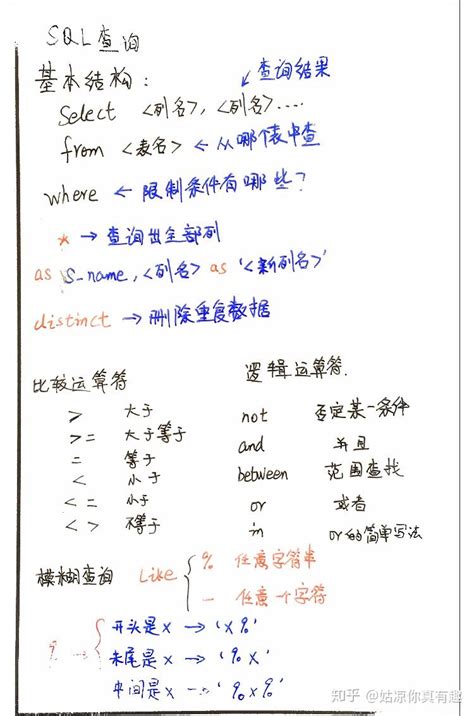 SQL查询
基本结构：
↙查询结果
Select <列名>, <列名>....
from <表名> ← 从哪个表中查
where ← 限制条件有哪些？
* → 查询出全部列
as S_name, <列名> as '<新列名>'
distinct → 删除重复数据
比较运算符
> 大于
>= 大于等于
= 等于
< 小于
<= 小于
<> 不等于
逻辑运算符.
not 否定某一条件
and 并且
between 范围查找
or 或者
in or的简单写法
模糊查询 Like
% 任意字符串
_ 任意一个字符
% →
开头是x → 'x%'
末尾是x → '%x'
中间是x → '%x%'
知乎 @姑凉你真有趣